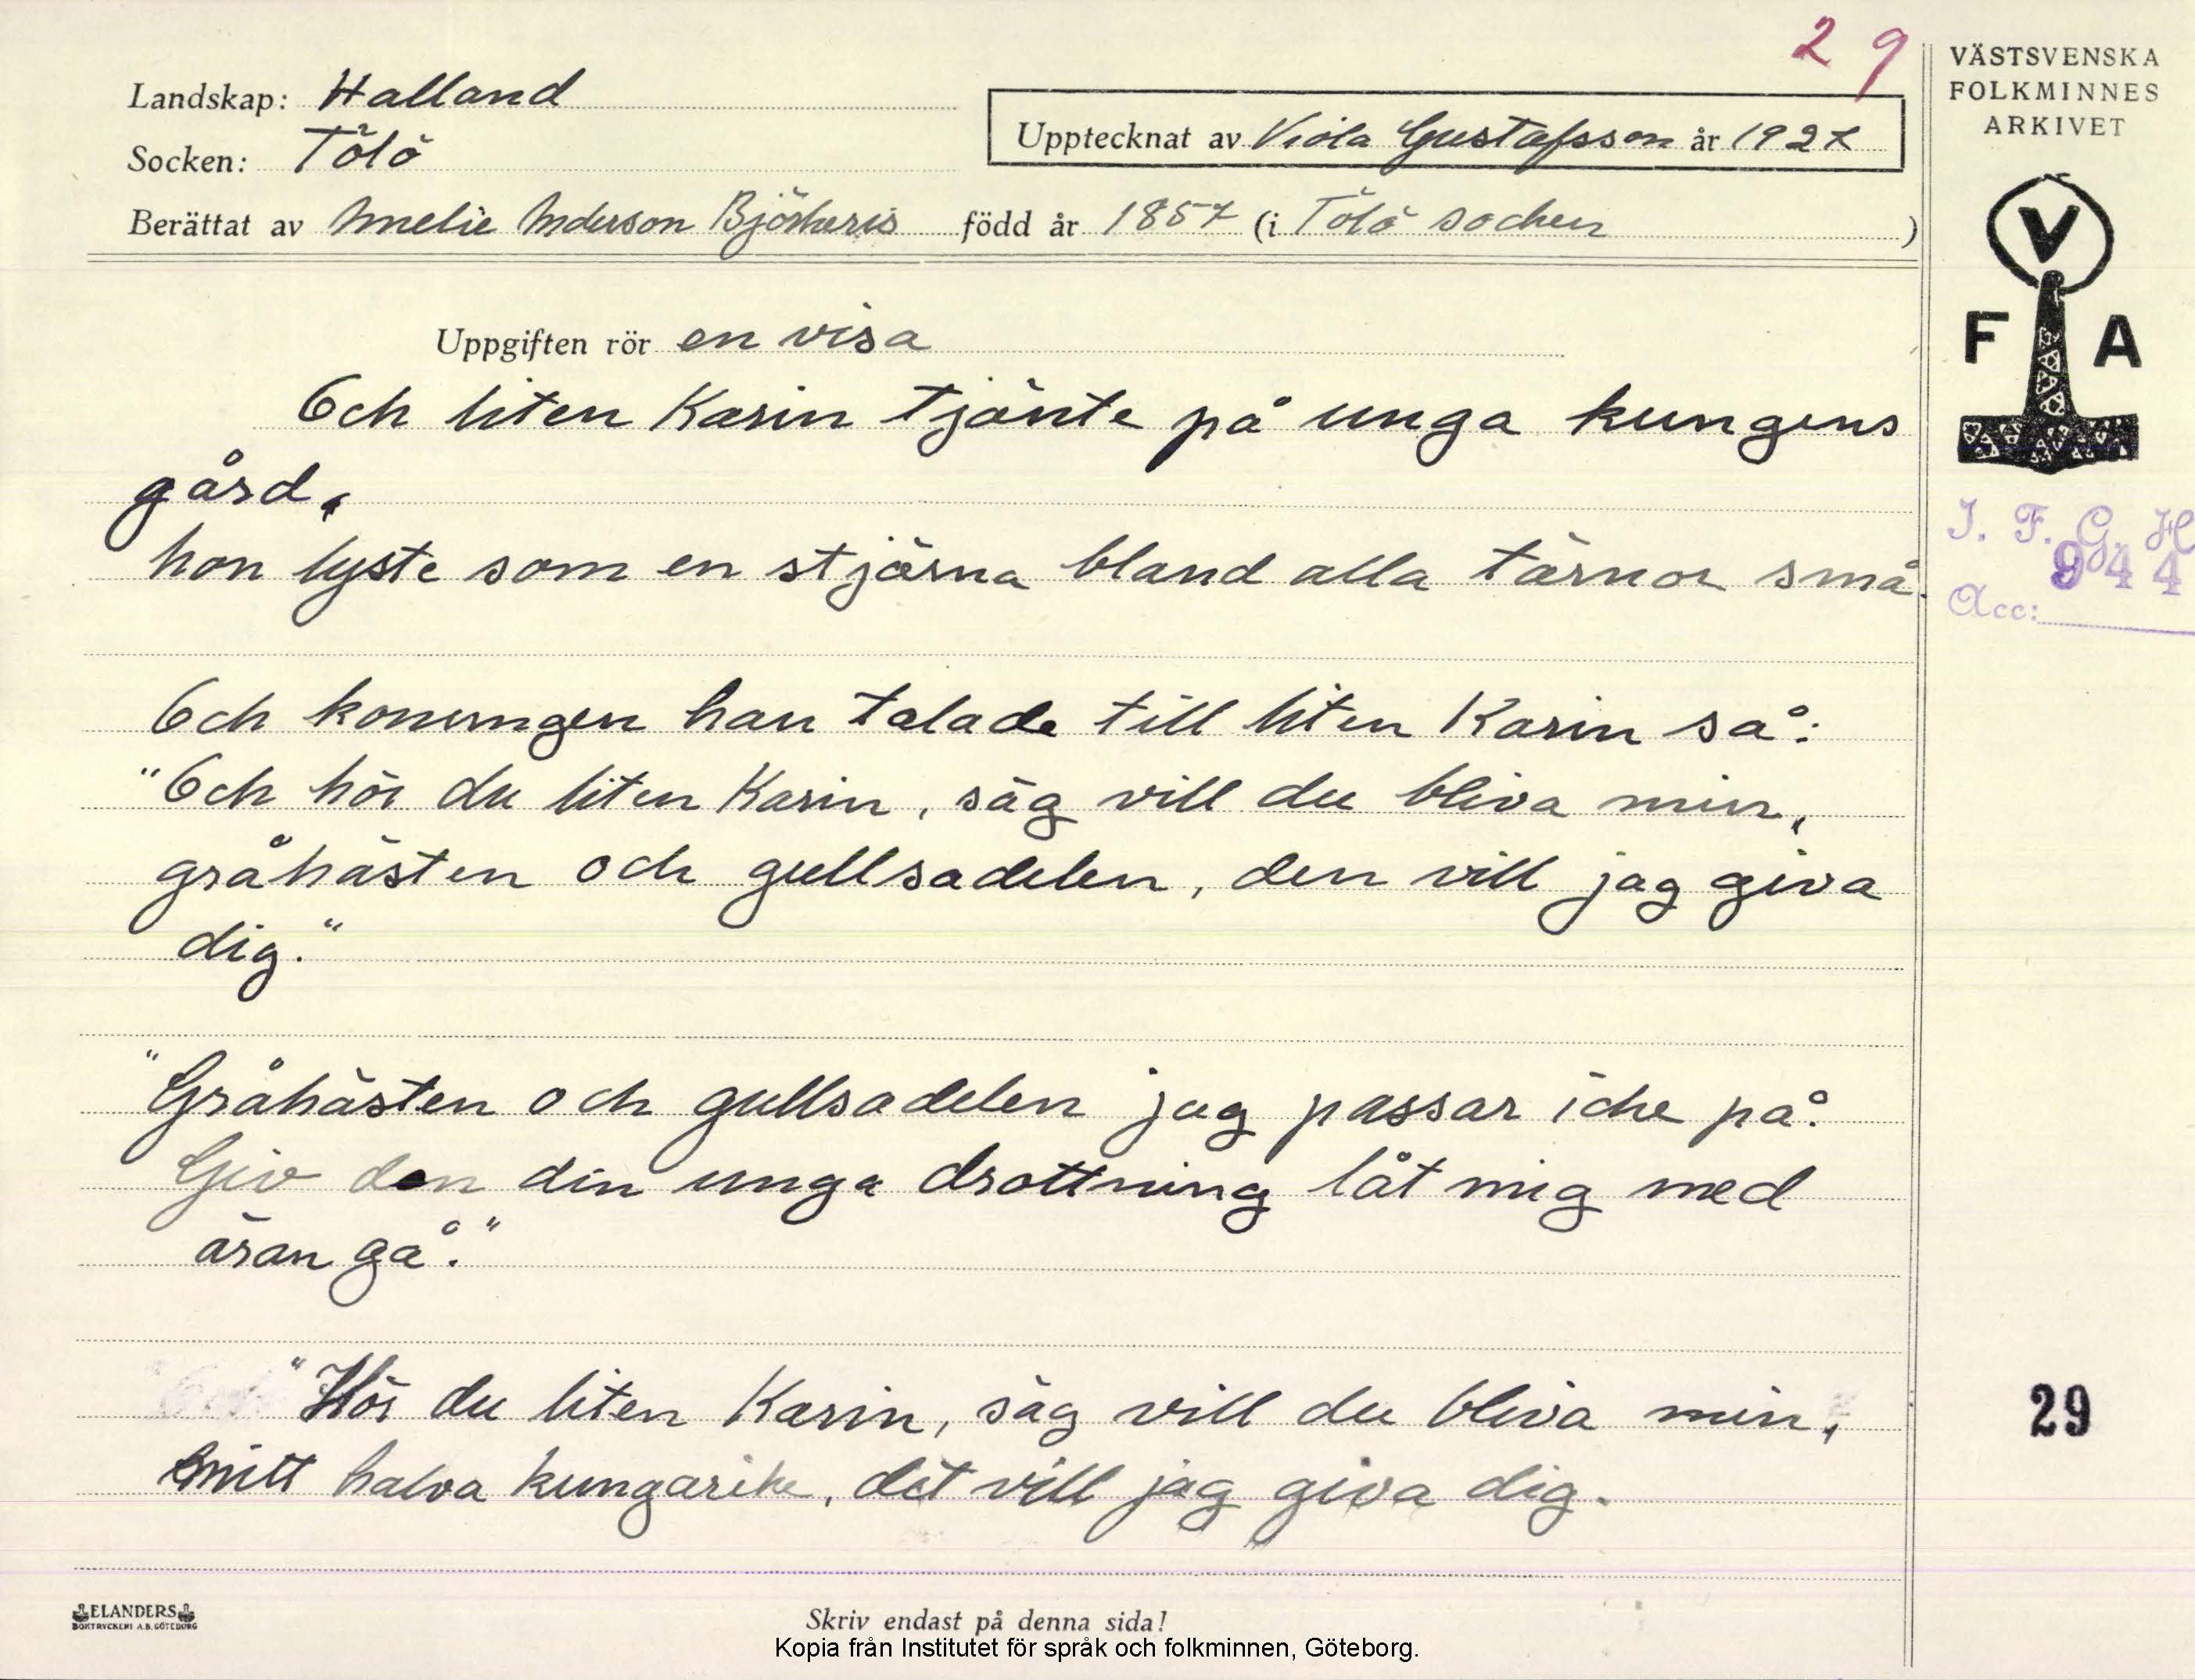 29
VÄSTSVENSKA
FOLKMINNES
ARKIVET
Landskap: Halland
Socken: Tölö
Upptecknat av Viola Gustafsson år 1927
Berättat av Amelie Anderson Björkeris född år 1857 (i Tölö socken)
V
F A
I. F. G. H
944
Acc:
Uppgiften rör en visa
Och liten Karin tjänte på unga kungens
gård,
hon lyste som en stjärna bland alla tärnor små.
Och konungen han talade till liten Karin så:
"Och hör du liten Karin, säg vill du bliva min,
gråhästen och gullsadelen, den vill jag giva
dig."
"Gråhästen och gullsadelen jag passar icke på.
Giv den din unga drottning låt mig med
äran gå."
"Hör du liten Karin, säg vill du bliva min,
mitt halva kungarike, det vill jag giva dig.
29
ELANDERS
BOKTRYCKERI A.B. GÖTEBORG
Skriv endast på denna sida!
Kopia från Institutet för språk och folkminnen, Göteborg.